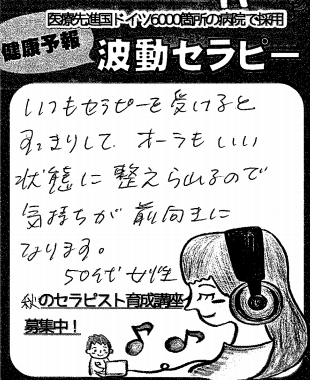 医療先進国ドイツ6000箇所の病院で採用
健康予報
波動セラピー
いつもセラピーを受けると
すっきりして、オーラもいい
状態に整えられるので
気持ちが前向きに
なります。
50代女性
秋のセラピスト育成講座
募集中！